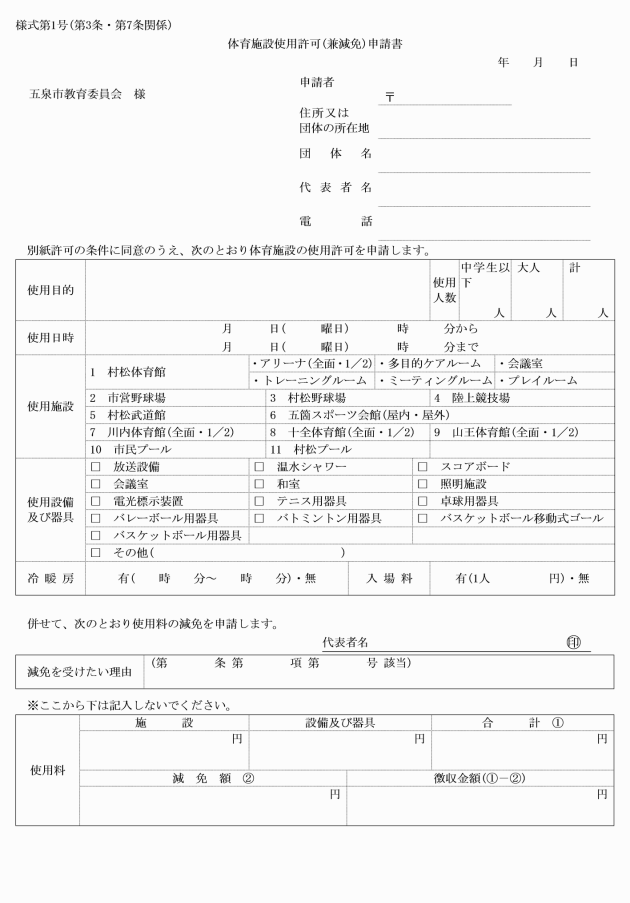 様式第1号(第3条・第7条関係)
体育施設使用許可(兼減免)申請書
年　月　日
五泉市教育委員会　様
申請者
〒
住所又は
団体の所在地
団体名
代表者名
電話
別紙許可の条件に同意のうえ、次のとおり体育施設の使用許可を申請します。
使用目的
使用
人数
中学生以
下
人
大人
人
計
人
使用日時
月　日(　曜日)　時　分から
月　日(　曜日)　時　分まで
使用施設
1　村松体育館
・アリーナ(全面・1／2)
・多目的ケアルーム
・会議室
・トレーニングルーム
・ミーティングルーム
・プレイルーム
2　市営野球場
3　村松野球場
4　陸上競技場
5　村松武道館
6　五箇スポーツ会館(屋内・屋外)
7　川内体育館(全面・1／2)
8　十全体育館(全面・1／2)
9　山王体育館(全面・1／2)
10　市民プール
11　村松プール
使用設備
及び器具
□　放送設備
□　温水シャワー
□　スコアボード
□　会議室
□　和室
□　照明施設
□　電光標示装置
□　テニス用器具
□　卓球用器具
□　バレーボール用器具
□　バトミントン用器具
□　バスケットボール移動式ゴール
□　バスケットボール用器具
□　その他(　　)
冷暖房
有(　時　分～　時　分)・無
入場料
有(1人　円)・無
併せて、次のとおり使用料の減免を申請します。
代表者名　㊞
減免を受けたい理由
(第　条 第　項 第　号 該当)
※ここから下は記入しないでください。
使用料
施設
設備及び器具
合計　①
円
円
円
減免額　②
徴収金額(①－②)
円
円